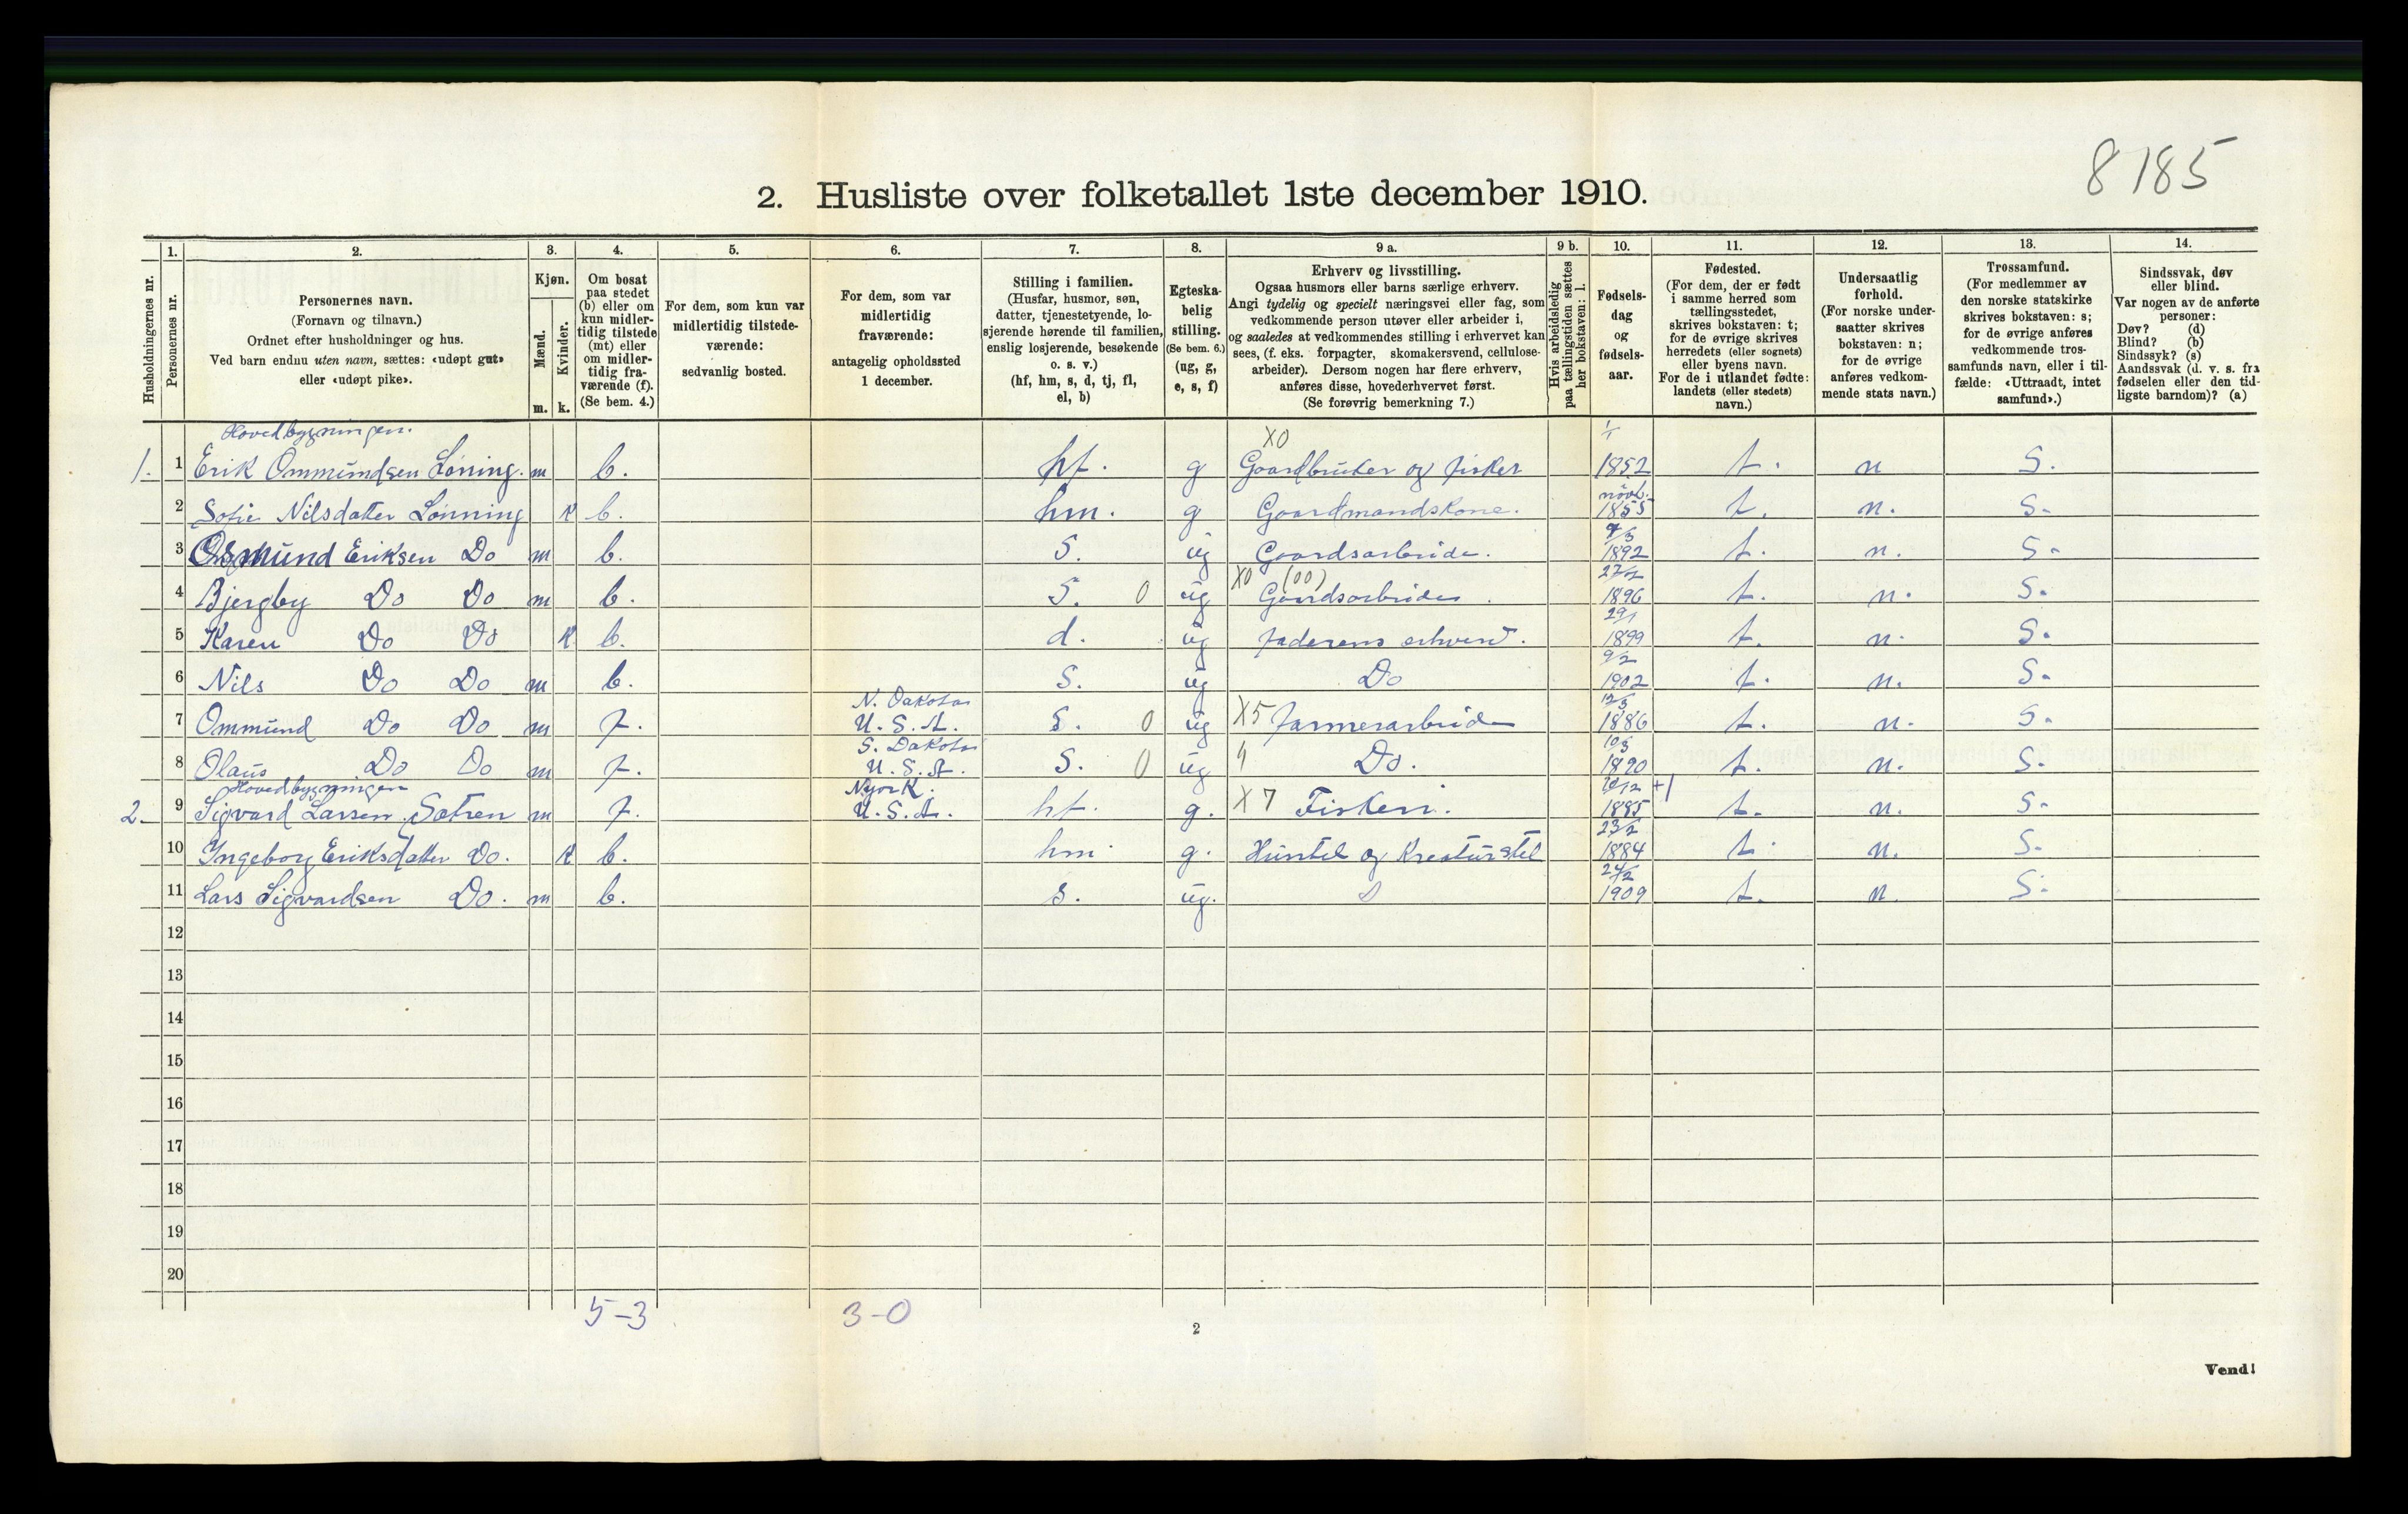 8185
2. Husliste over folketallet 1ste december 1910.
Husholdningernes nr.
1. Personernes nr.
2. Personernes navn.
(Fornavn og tilnavn.)
Ordnet efter husholdninger og hus.
Ved barn endnu uten navn, sættes: «udøpt gut»
eller «udøpt pike».
3. Kjøn.
Mænd. m.
Kvinder. k.
4. Om bosat
paa stedet
(b) eller om
kun midler-
tidig tilstede
(mt) eller
om midler-
tidig fra-
værende (f).
(Se bem. 4.)
5. For dem, som kun var
midlertidig tilstede-
værende:
sedvanlig bosted.
6. For dem, som var
midlertidig
fraværende:
antagelig opholdssted
1 december.
7. Stilling i familien.
(Husfar, husmor, søn,
datter, tjenestetyende, lo-
sjerende hørende til familien,
enslig losjerende, besøkende
o. s. v.)
(hf, hm, s, d, tj, fl,
el, b)
8. Egteska-
belig
stilling.
(Se bem. 6.)
(ug, g,
e, s, f)
9 a. Erhverv og livsstilling.
Ogsaa husmors eller barns særlige erhverv.
Angi tydelig og specielt næringsvei eller fag, som
vedkommende person utøver eller arbeider i,
og saaledes at vedkommendes stilling i erhvervet kan
sees, (f. eks. forpagter, skomakersvend, cellulose-
arbeider). Dersom nogen har flere erhverv,
anføres disse, hovederhvervet først.
(Se forøvrig bemerkning 7.)
9 b. Hvis arbeidsledig
paa tællingstiden sættes
her bokstaven: l.
10. Fødsels-
dag
og
fødsels-
aar.
11. Fødested.
(For dem, der er født
i samme herred som
tællingsstedet,
skrives bokstaven: t;
for de øvrige skrives
herredets (eller sognets)
eller byens navn.
For de i utlandet fødte:
landets (eller stedets)
navn.)
12. Undersaatlig
forhold.
(For norske under-
saatter skrives
bokstaven: n;
for de øvrige
anføres vedkom-
mende stats navn.)
13. Trossamfund.
(For medlemmer av
den norske statskirke
skrives bokstaven: s;
for de øvrige anføres
vedkommende tros-
samfunds navn, eller i til-
fælde: «Uttraadt, intet
samfund».)
14. Sindssvak, døv
eller blind.
Var nogen av de anførte
personer:
Døv? (d)
Blind? (b)
Sindssyk? (s)
Aandssvak (d. v. s. fra
fødselen eller den tid-
ligste barndom)? (a)
Hovedbygningen.
1. 1 Erik Ommundsen Løning. m b. hf. g X0 Gaardbruker og fisker 1/1 1852 t. n S.
2 Sofie Nilsdatter Lønning K b. hm. g Gaardmandskone. novb. 1855 t. n. S.
3 Osmund Eriksen Do m b. S. ug Gaardsarbeide. 1892 t. n. S.
4 Bjergby Do Do m b. S. 0 ug X0 (00) Gaardsarbeider. 27/2 1896 t. n. S.
5 Karen Do Do K b. d. ug faderens erhverv. 29/1 1899 t. n. S.
6 Nils Do Do m b. S. ug Do 9/2 1902 t. n. S.
7 Ommund Do Do m f. N. Dakota U.S.A. S. 0 ug X5 farmerarbeide 12/3 1886 t. n. S.
8 Olaus Do Do m f. S. Dakota U.S.A. S. 0 ug Do. 10/3 1890 t. n. S.
Hovedbygningen
2. 9 Sigvard Larsen Sætren m f. Nyork. U.S.A. hf. g. X7 Fiskeri. 1885 +1 t. n. S.
10 Ingeborg Eriksdatter Do. K b. hm. g. Hunstel og Kreaturstel 23/2 1884 t. n. S.
11 Lars Sigvardsen Do. m b. s. ug. 24/2 1909 t. n. S.
12
13
14
15
16
17
18
19
20
5-3 3-0
2
Vend!